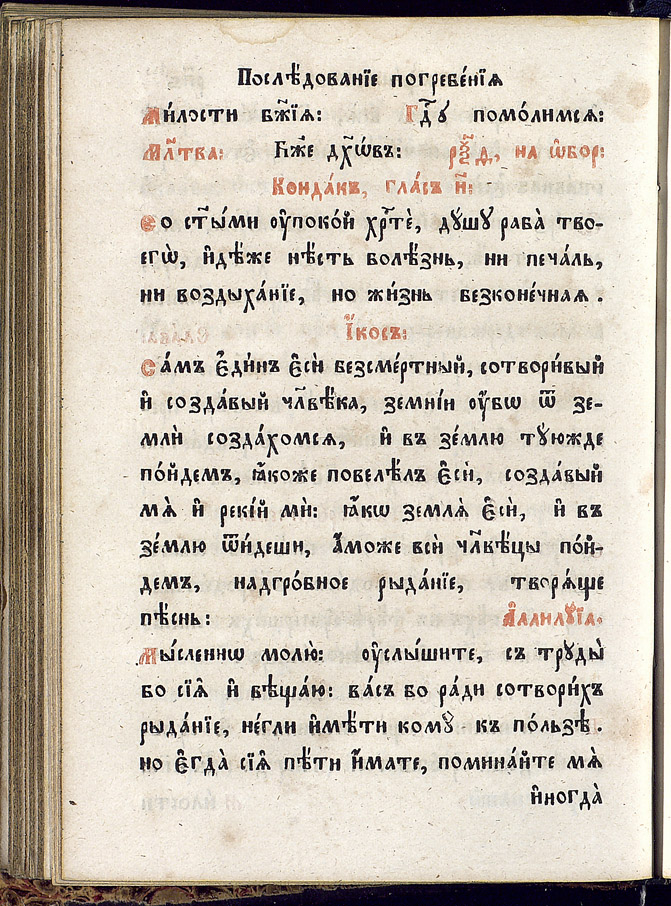 Послѣ́дованїе погребе́нїѧ
Ми́лости бж҃їѧ: Гдⷭ҇ꙋ помо́лимсѧ:
Млт҃ва: Бж҃е дх҃ѡ́въ: рѯ҃д, на ѡ҆бор:
Конда́къ, гла́съ и҃:
Со ст҃ы́ми ᲂу҆поко́й хрⷭ҇тѐ, дꙋ́шꙋ раба̀ тво-
егѡ̀, и҆дѣ́же нѣ́сть болѣ́знь, ни печа́ль,
ни воздыха́нїе, но жи́знь безконе́чнаѧ.
І҆́косъ:
Са́мъ є҆ди́нъ є҆сѝ безсме́ртный, сотвори́вый
и҆ созда́вый чл҃вѣ́ка, земні́и ᲂу҆́бѡ ѿ зе-
млѝ созда́хомсѧ, и҆ въ зе́млю тꙋ́южде
по́йдемъ, ꙗ҆́коже повелѣ́лъ є҆сѝ, созда́вый
мѧ̀ и҆ реки́й мѝ: ꙗ҆́кѡ землѧ̀ є҆сѝ, и҆ въ
зе́млю ѿи́деши, а҆́може всѝ чл҃вѣ́цы по́й-
демъ, надгро́бное рыда́нїе, творѧ́ще
пѣ́снь: А҆ллилꙋ́їа.
Мы́сленнѡ молю̀: ᲂу҆слы́шите, съ трꙋды̀
бо сїѧ̀ и҆ вѣща́ю: ва́съ бо ра́ди сотвори́хъ
рыда́нїе, не́гли и҆мѣ́ти комꙋ̀ къ по́льзѣ.
но є҆гда̀ сїѧ̀ пѣ́ти и҆́мате, помина́йте мѧ̀
и҆ногда̀